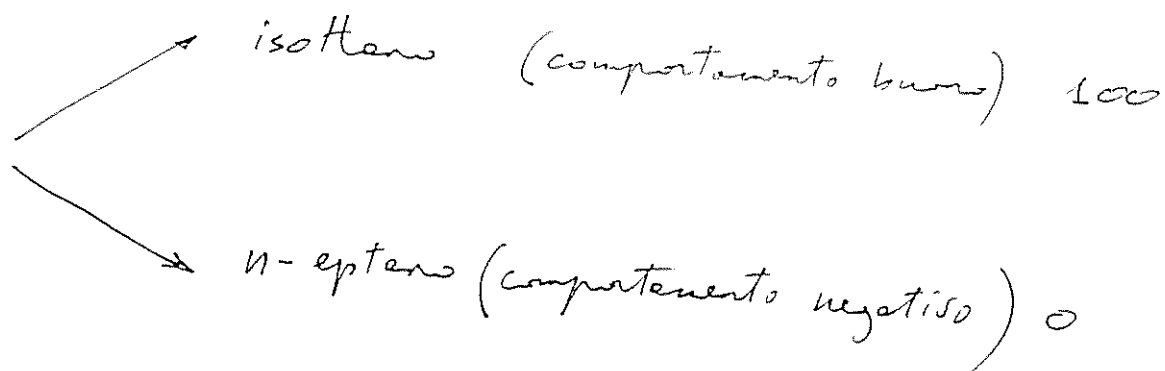 isottano (comportamento buono) 100
n-eptano (comportamento negativo) 0